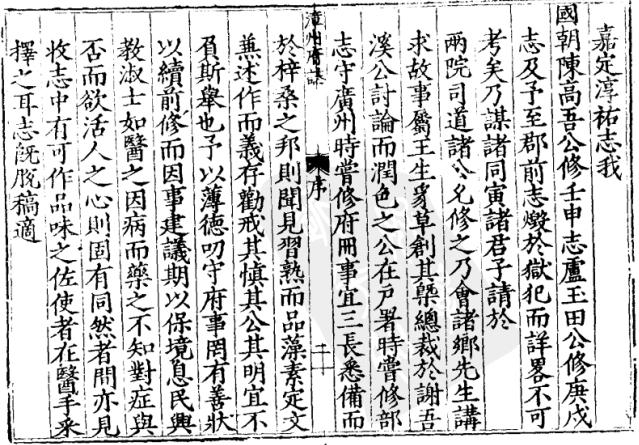 嘉定淳祐志我
國朝陳高吾公修壬申志盧玉田公修庚戌
志及予至郡前志燬於獄犯而詳畧不可
考矣乃謀諸同寅諸君子請於
兩院司道諸公允修之乃會諸鄉先生講
求故事屬王生豸草創其槩總裁於謝吾
溪公討論而潤色之公在戶署時嘗修部
志守廣州時嘗修府冊事宜三長悉備而
漳州府志
序
於梓桑之邦則聞見習熟而品藻素定文
兼述作而義存勸戒其慎其公其明宜不
負斯舉也予以薄德叨守府事罔有善狀
以續前修而因事建議期以保境息民興
教淑士如醫之因病而藥之不知對症與
否而欲活人之心則固有同然者間亦見
收志中有可作品味之佐使者在醫手采
擇之耳志旣脫稿適